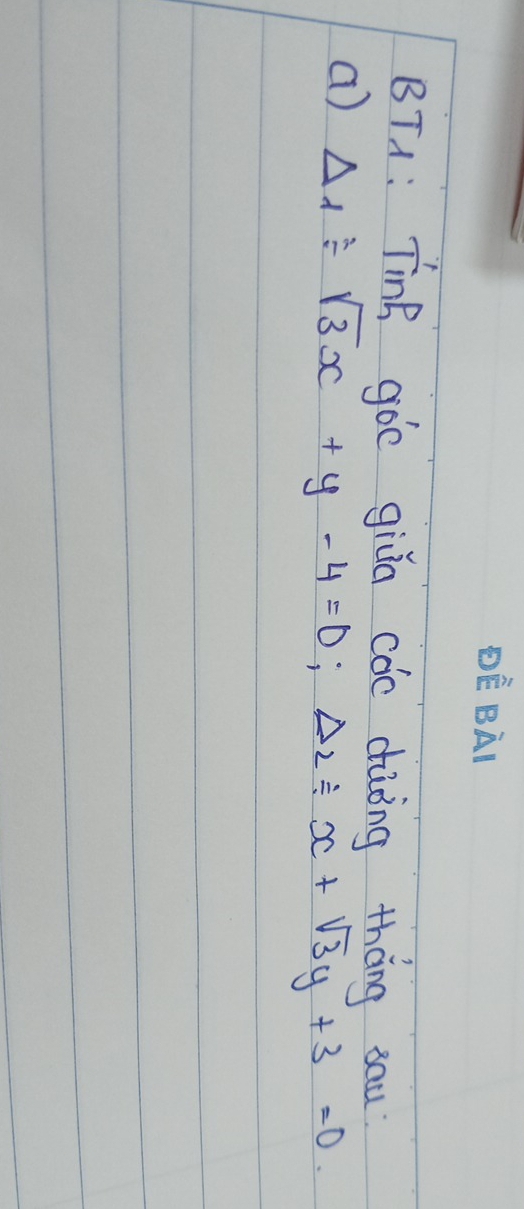 ĐỀ BÀI
BT1: Tính góc giữa các đường thẳng sau:
a) Δ1: √3x + y - 4 = 0; Δ2: x + √3y + 3 = 0.